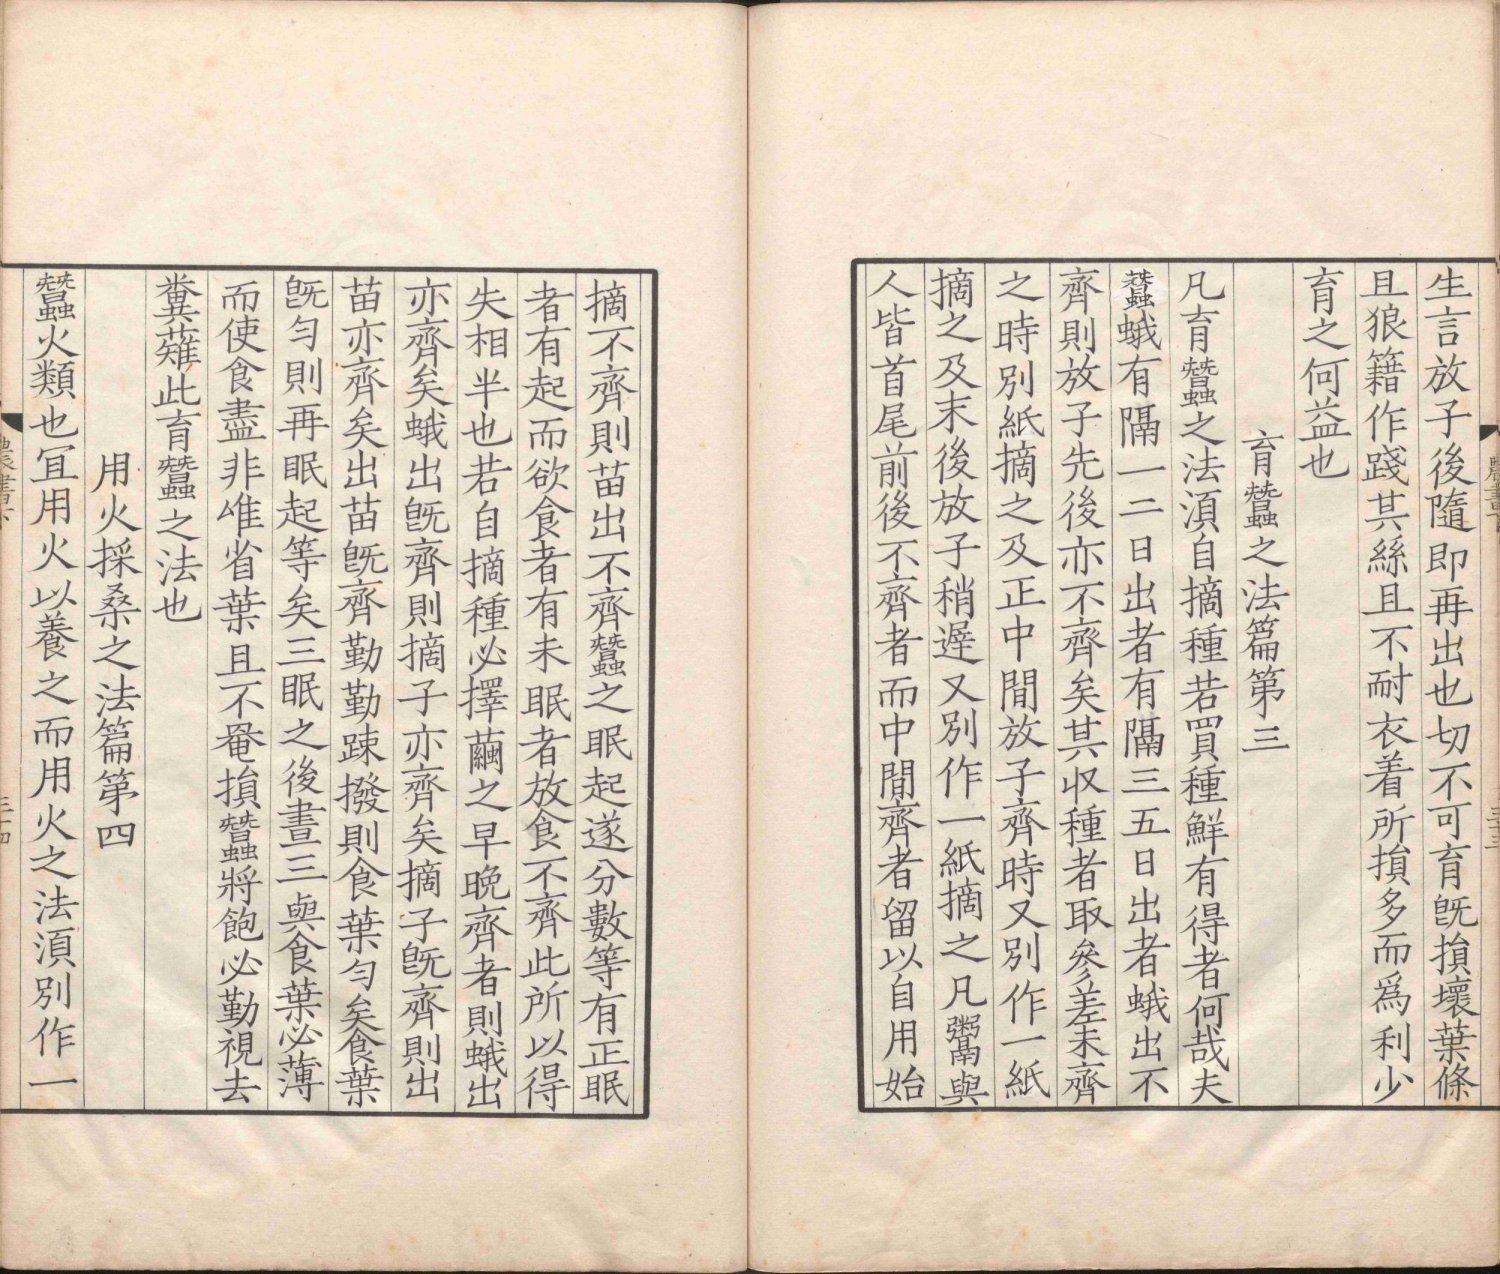 生言放子後隨即再出也切不可育旣損壞葉條
且狼籍作踐其絲且不耐衣着所損多而爲利少
育之何益也
育蠶之法篇第三
凡育蠶之法湏自摘種若買種鮮有得者何哉夫
蠶蛾有隔一二日出者有隔三五日出者蛾出不
齊則放子先後亦不齊矣其收種者取參差未齊
之時別紙摘之及正中間放子齊時又別作一紙
摘之及末後放子稍遲又別作一紙摘之凡鬻與
人皆首尾前後不齊者而中間齊者留以自用始
摘不齊則苗出不齊蠶之眠起遂分數等有正眠
者有起而欲食者有未眠者放食不齊此所以得
失相半也若自摘種必擇繭之早晚齊者則蛾出
亦齊矣蛾出旣齊則摘子亦齊矣摘子旣齊則出
苗亦齊矣出苗旣齊勤勤踈撥則食葉勻矣食葉
旣勻則再眠起等矣三眠之後晝三與食葉必薄
而使食盡非唯省葉且不罨損蠶將飽必勤視去
糞薙此育蠶之法也
用火採桑之法篇第四
蠶火類也冝用火以養之而用火之法湏別作一
農書下
三十三
農書下
三十四